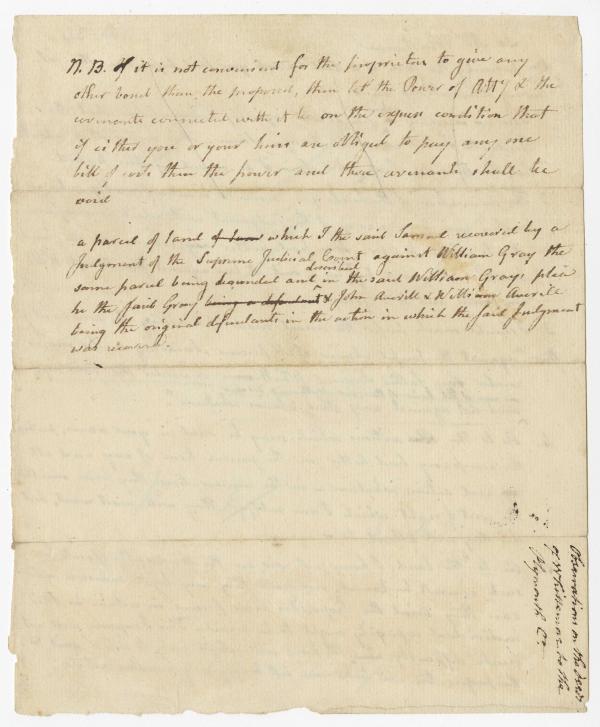 N. B. If it is not convenient for the proprietors to give any
other bond than the proposed, then let the Power of Atty & the
covenants connected with it be on the express condition that
if either you or your heirs are obliged to pay any one
bill of costs then the power and those covenants shall be
void
a parcel of land of land which I the said Samuel recovered by a
Judgment of the Supreme Judicial Court against William Gray the
same parcel being demanded and described in the said William Grays plea
he the said Gray being a defendant & John Averill & William Averill
being the original defendants in the action in which the said Judgment
was recovered.
Observations on the deed
of Whittemore to the
Plymouth Co